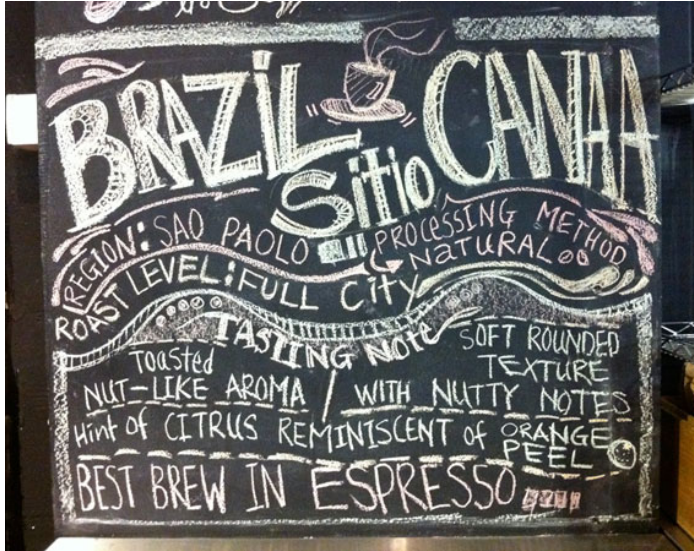 BRAZIL Sitio CANAA
REGION: SAO PAOLO
PROCESSING METHOD
NATURAL
ROAST LEVEL: FULL City
TASTING NOTE
Toasted
NUT-LIKE AROMA /
SOFT ROUNDED
TEXTURE
WITH NUTTY NOTES
Hint of CITRUS REMINISCENT of ORANGE
PEEL
BEST BREW IN ESPRESSO